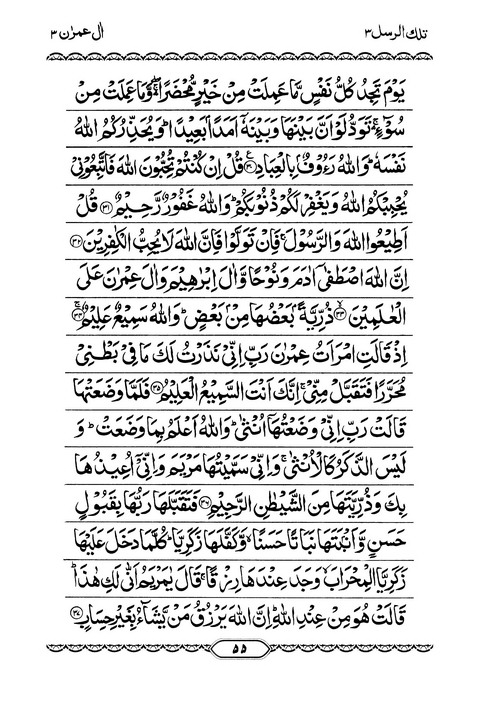 تلك الرسل ٣ اٰل عمرٰن ٣
يَوْمَ تَجِدُ كُلُّ نَفْسٍ مَّا عَمِلَتْ مِنْ خَيْرٍ مُّحْضَرًا ۛۖ وَّمَا عَمِلَتْ مِنْ
سُوْٓءٍ ۛۚ تَوَدُّ لَوْ اَنَّ بَيْنَهَا وَبَيْنَهٗۤ اَمَدًاۢ بَعِيْدًا ؕ وَيُحَذِّرُكُمُ اللّٰهُ
نَفْسَهٗ ؕ وَاللّٰهُ رَءُوْفٌۢ بِالْعِبَادِ ﴿٣٠﴾ قُلْ اِنْ كُنْتُمْ تُحِبُّوْنَ اللّٰهَ فَاتَّبِعُوْنِيْ
يُحْبِبْكُمُ اللّٰهُ وَيَغْفِرْ لَكُمْ ذُنُوْبَكُمْ ؕ وَاللّٰهُ غَفُوْرٌ رَّحِيْمٌ ﴿٣١﴾ قُلْ
اَطِيْعُوا اللّٰهَ وَالرَّسُوْلَ ۚ فَاِنْ تَوَلَّوْا فَاِنَّ اللّٰهَ لَا يُحِبُّ الْكٰفِرِيْنَ ﴿٣٢﴾
اِنَّ اللّٰهَ اصْطَفٰٓى اٰدَمَ وَنُوْحًا وَّاٰلَ اِبْرٰهِيْمَ وَاٰلَ عِمْرٰنَ عَلَى
الْعٰلَمِيْنَ ۙ﴿٣٣﴾ ذُرِّيَّةًۢ بَعْضُهَا مِنْۢ بَعْضٍ ؕ وَاللّٰهُ سَمِيْعٌ عَلِيْمٌ ۚ﴿٣٤﴾
اِذْ قَالَتِ امْرَاَتُ عِمْرٰنَ رَبِّ اِنِّيْ نَذَرْتُ لَكَ مَا فِيْ بَطْنِيْ
مُحَرَّرًا فَتَقَبَّلْ مِنِّيْ ۚ اِنَّكَ اَنْتَ السَّمِيْعُ الْعَلِيْمُ ﴿٣٥﴾ فَلَمَّا وَضَعَتْهَا
قَالَتْ رَبِّ اِنِّيْ وَضَعْتُهَاۤ اُنْثٰى ؕ وَاللّٰهُ اَعْلَمُ بِمَا وَضَعَتْ ؕ وَ
لَيْسَ الذَّكَرُ كَالْاُنْثٰى ۚ وَاِنِّيْ سَمَّيْتُهَا مَرْيَمَ وَاِنِّيْۤ اُعِيْذُهَا
بِكَ وَذُرِّيَّتَهَا مِنَ الشَّيْطٰنِ الرَّجِيْمِ ﴿٣٦﴾ فَتَقَبَّلَهَا رَبُّهَا بِقَبُوْلٍ
حَسَنٍ وَّاَنْۢبَتَهَا نَبَاتًا حَسَنًا ۙ وَّكَفَّلَهَا زَكَرِيَّا ؕ كُلَّمَا دَخَلَ عَلَيْهَا
زَكَرِيَّا الْمِحْرَابَ ۙ وَجَدَ عِنْدَهَا رِزْقًا ۚ قَالَ يٰمَرْيَمُ اَنّٰى لَكِ هٰذَا ؕ
قَالَتْ هُوَ مِنْ عِنْدِ اللّٰهِ ؕ اِنَّ اللّٰهَ يَرْزُقُ مَنْ يَّشَآءُ بِغَيْرِ حِسَابٍ ﴿٣٧﴾
٥٥